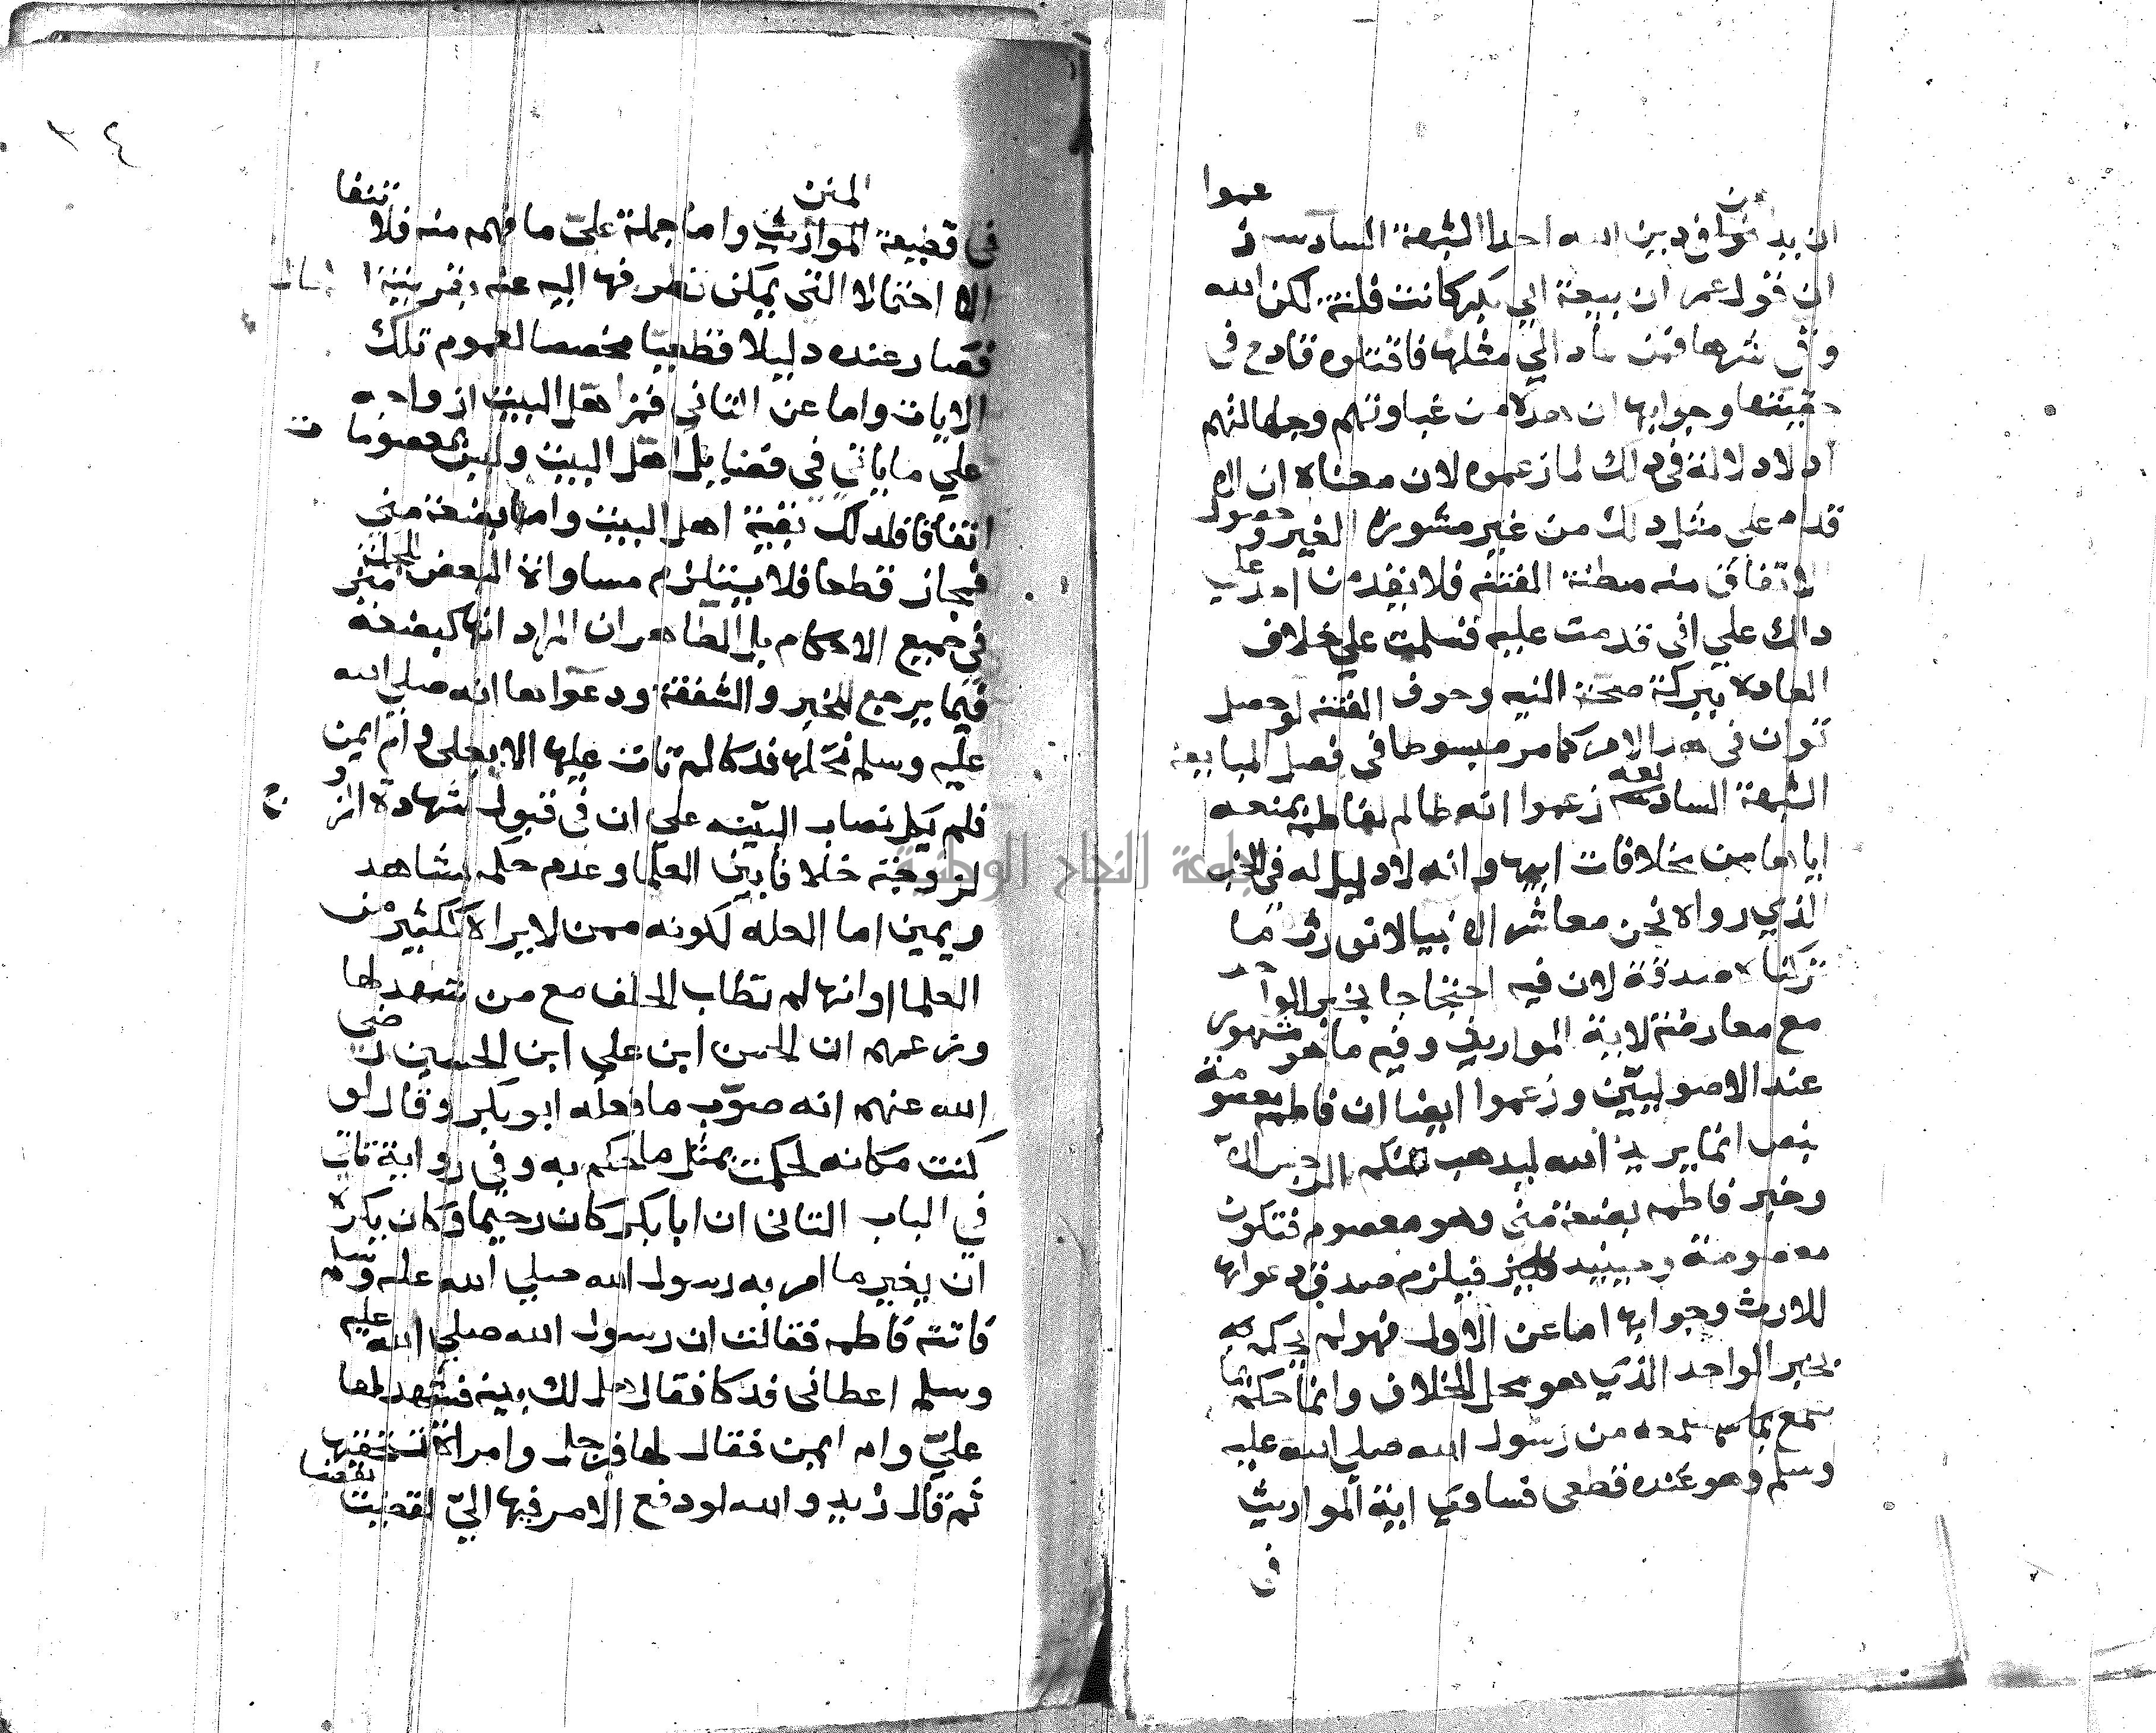 ان يدخوا في دين الله احدا الشبهة السادسة زعموا
ان قول عمر ان بيعة ابي بكر كانت فلتة لكن الله
وقي شرها فمن عاد الي مثلها فاقتلوه قادح في
حقيتها وجوابها ان هذا من غباوتهم وجهالتهم
اد لا دلالة في دلك لما زعموه لان معناه ان الا
قدام علي مثل دلك من غير مشورة الغير وحصول
الاتفاق منه مظنة الفتنة فلا يقدمن احد علي
دالك علي اني قدمت عليه فسلمت علي خلاف
العاده ببركة صحة النيه وخوف الفتنة لو حصل
توان في هدا الامر كما مر مبسوطا في فصل المبايعة
الشبهة السابعه زعموا انه ظالم لفاطمة بمنعه
اياها من مخلافات ابيها وانه لا دليل له في الخبر
الذي رواه نحن معاشر الانبيا لا نورث ما
تركناه صدقة لان فيه احتجاجا بخبر الواحد
مع معارضته لاية المواريث وفيه ما هو مشهور
عند الاصوليين وزعموا ايضا ان فاطمه معصومة
بنص انما يريد الله ليدهب عنكم الرجس
وخبر فاطمه بضعة مني وهو معصوم فتكون
معصومة وحينيد فيلزم صدق دعواها
للارث وجوابها اما عن الاول فهو لم يحكم
بخبر الواحد الذي هو محل الخلاف وانما حكم بما
سمعه من رسول الله صلي الله عليه
وسلم وهو عنده قطعي فساوي اية المواريث
في
٣٤
في قطيعة المتن المواريث واما حمله علي ما فهمه منه فلانتفا
الاحتمالا التي يمكن تطرفها اليه عنه بقرينة
فصار عنده دليلا قطعيا مخصصا لعموم تلك
الايات واما عن الثاني فمن اهل البيت ازواجه
علي ما ياتي في فضايل اهل البيت ولسن بمعصومات
اتفاقا فلدلك بقية اهل البيت واما بضعة مني
فمجاز قطعا فلا يستلزم مساواة البعض للجملة
في جميع الاحكام بل الظاهر ان المراد انها كبضعة مني
فيما يرجع للخير والشفقة ودعواها انه صلي الله
عليه وسلم نحلها فدكا لم تات عليها الا بعلي وام ايمن
فلم يكمل نصاب البينه علي ان في قبول شهادة الزوج
لزوجته خلافا بين العلما وعدم حكمه بشاهد
ويمين اما لعله لكونه ممن لا يراه ككثير من
العلما او انها لم تطلب الحلف مع من شهد لها
وزعمهم ان الحسن ابن علي ابن الحسين رضي
الله عنهم انه صوب ما فعله ابو بكر وقال لو
كنت مكانه لحكمت بمثل ما حكم به وفي رواية تاتي
في الباب الثاني ان ابا بكر كان رحيما وكان يكره
ان يغير ما امر به رسول الله صلي الله عليه وسلم
فاتته فاطمه فقالت ان رسول الله صلي الله عليه
وسلم اعطاني فدكا فقال هل لك بينه فشهد لها
علي وام ايمن فقال لها فرجل وامراة تستحقيها
ثم قال زيد والله لو دفع الامر فيها الي لقضيت بقضا
جامعة النجاح الوطنية